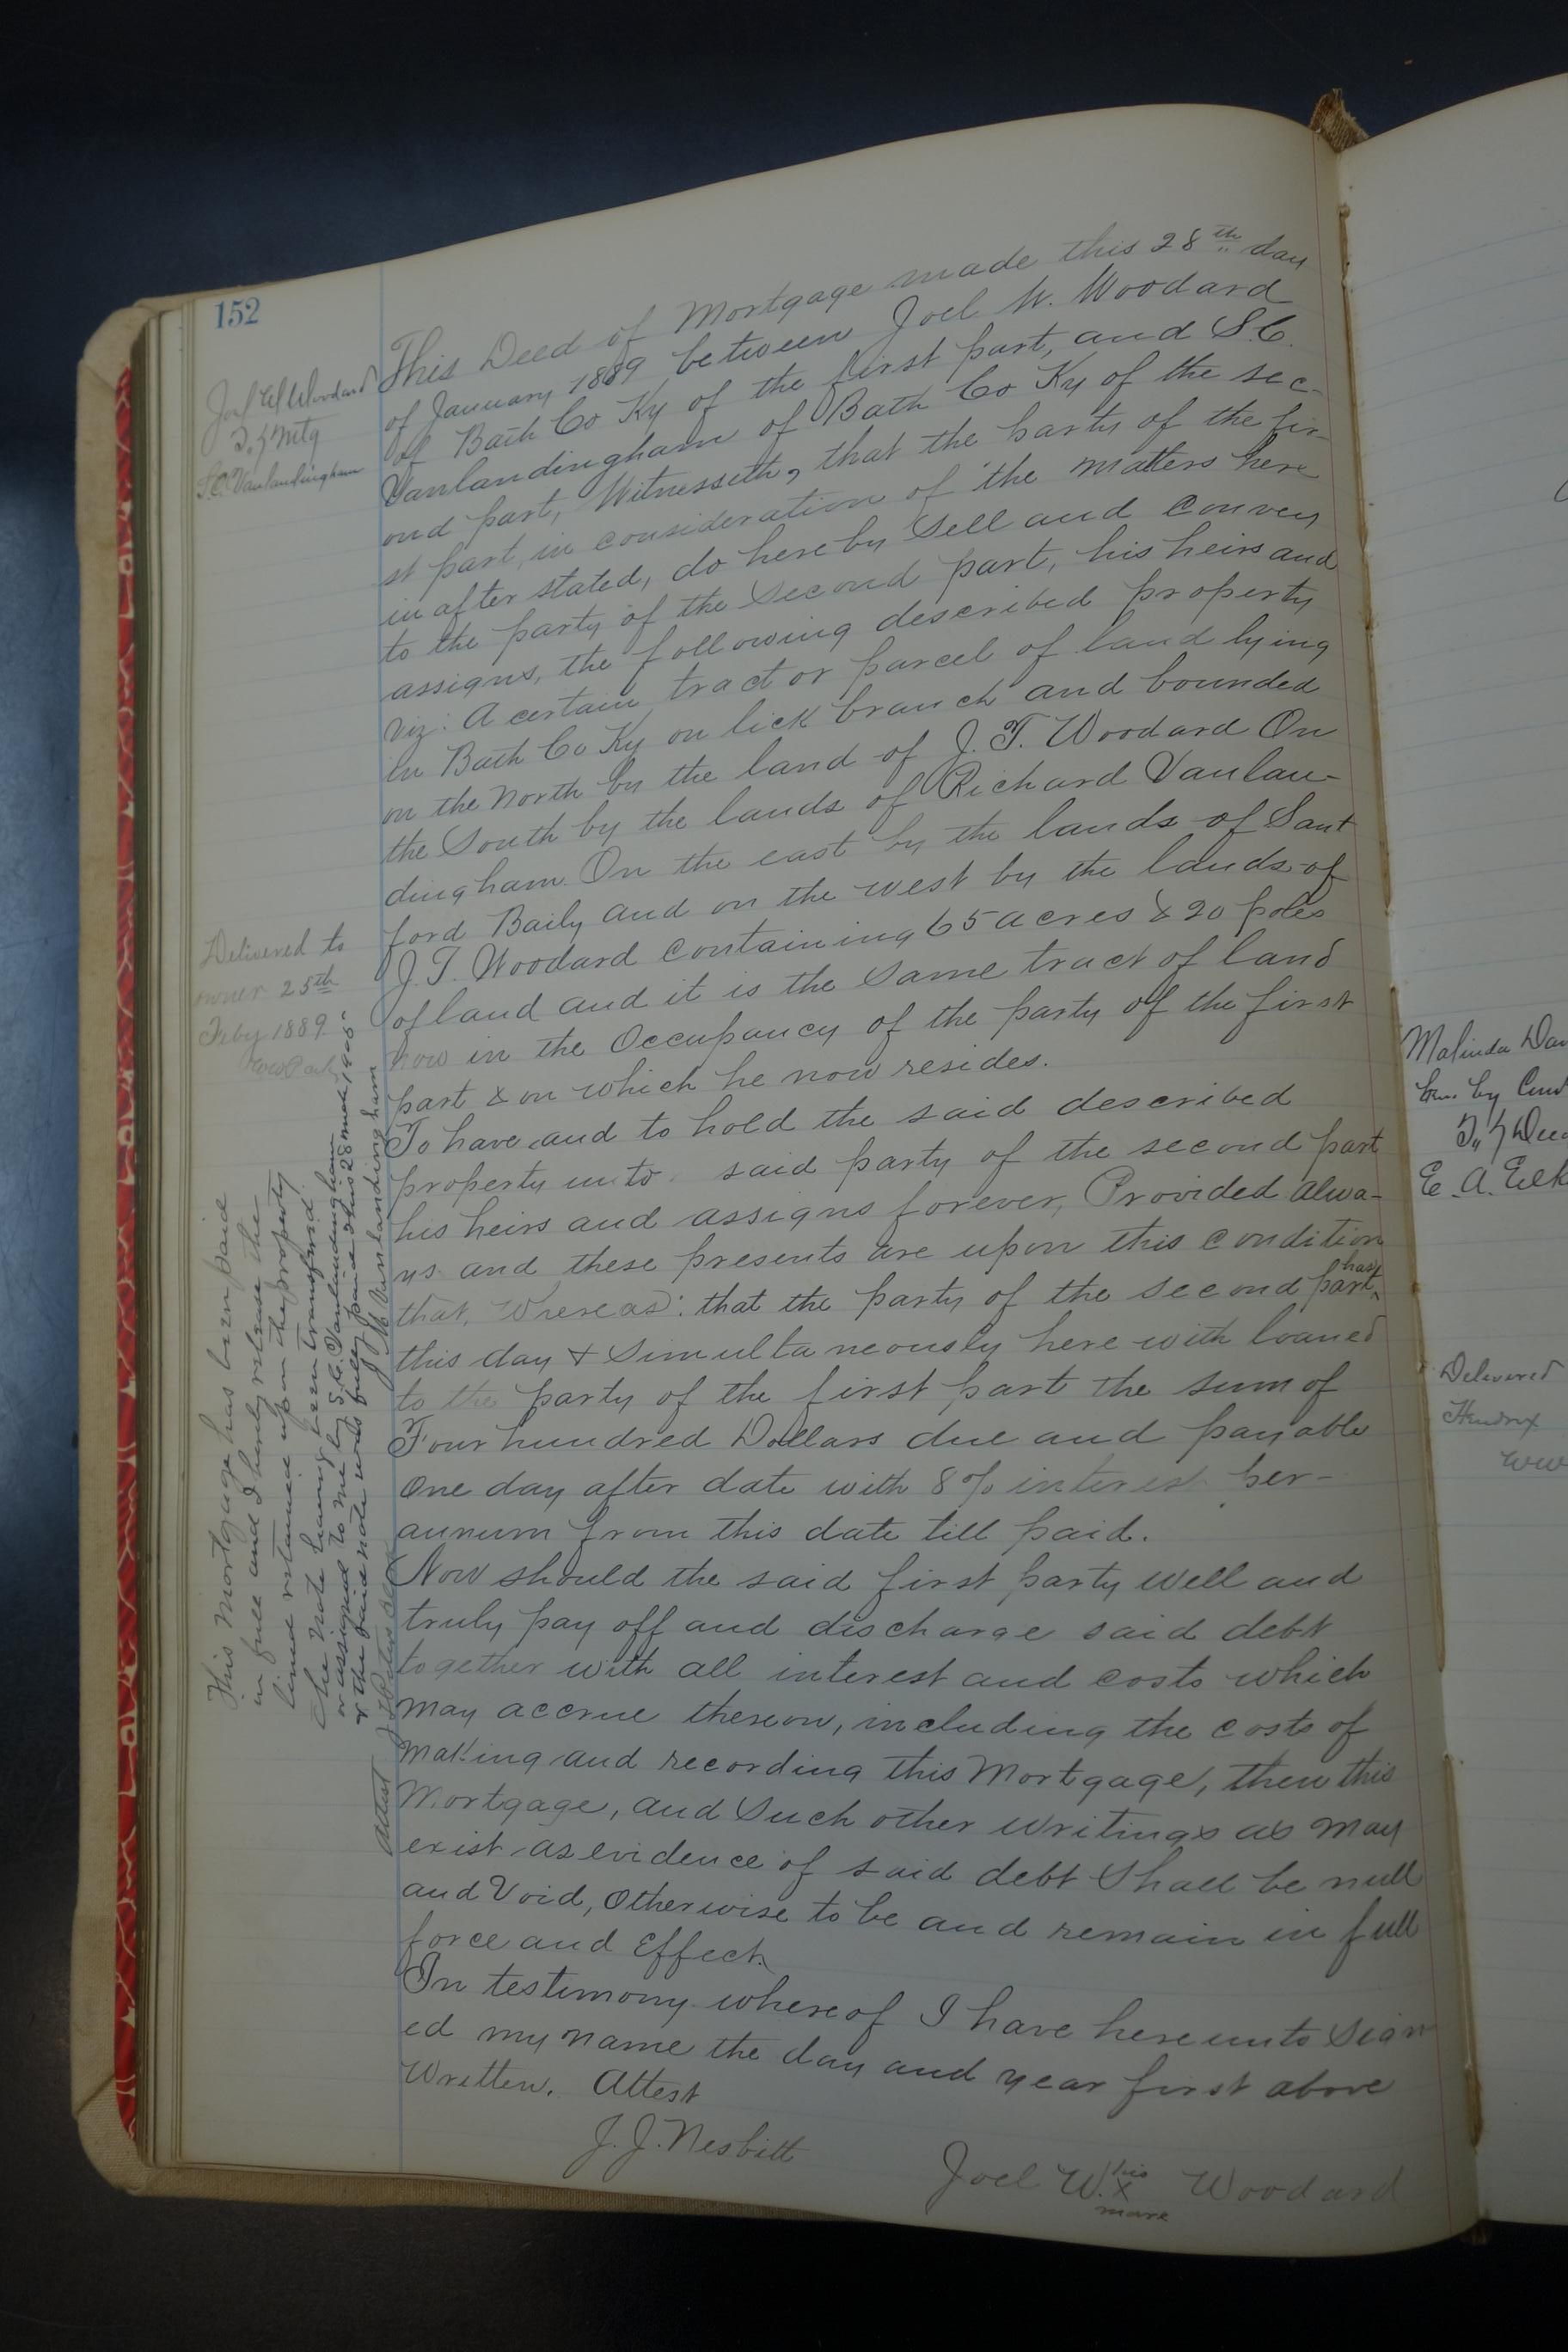 152
Joel W Woodard
To } Mtg
S.C. Vanlandingham
This Deed of Mortgage made this 28th day
of January 1889 between Joel W. Woodard
of Bath Co Ky of the first part, and S.C.
Vanlandingham of Bath Co Ky of the sec-
ond part, Witnesseth, that the party of the fir-
st part, in consideration of the matters here
in after stated, do hereby Sell and Convey
to the party of the Second part, his heirs and
assigns, the following described property
viz: A certain tract or parcel of land lying
in Bath Co Ky on lick branch and bounded
on the North by the land of J. T. Woodard On
the South by the lands of Richard Vanlan-
dingham On the east by the lands of Sant
ford Baily and on the west by the lands of
J. T. Woodard Containing 65 acres & 20 poles
of land and it is the Same tract of land
now in the Occupancy of the party of the first
part & on which he now resides.
To have and to hold the said described
property unto said party of the second part
his heirs and assigns forever, Provided alwa-
ys and these presents are upon this condition
that, Whereas: that the party of the second part has
this day & Simultaneously here with loaned
to the party of the first part the sum of
Four hundred Dollars due and payable
One day after date with 8% interest per-
annum from this date till paid.
Now should the said first party well and
truly pay off and discharge said debt
together with all interest and costs which
may accrue thereon, including the costs of
making and recording this Mortgage, then this
Mortgage, and Such other writings as may
exist as evidence of said debt Shall be null
and Void, Otherwise to be and remain in full
force and Effect.
In testimony whereof I have hereunto Sign
ed my name the day and year first above
Written. Attest
J. J. Nesbitt
Joel W. his X mark Woodard
Delivered to
owner 25th
Feby 1889
This Mortgage has been paid
in full and I hereby release the
lien retained upon the property
the note having been transferred
or assigned to me by S.C. Vanlandingham
& the said note was fully paid this 28 mch 1905
J M Vanlandingham
Attest
Malinda
by
To } Deed
E. A.
Delivered
Hendrix